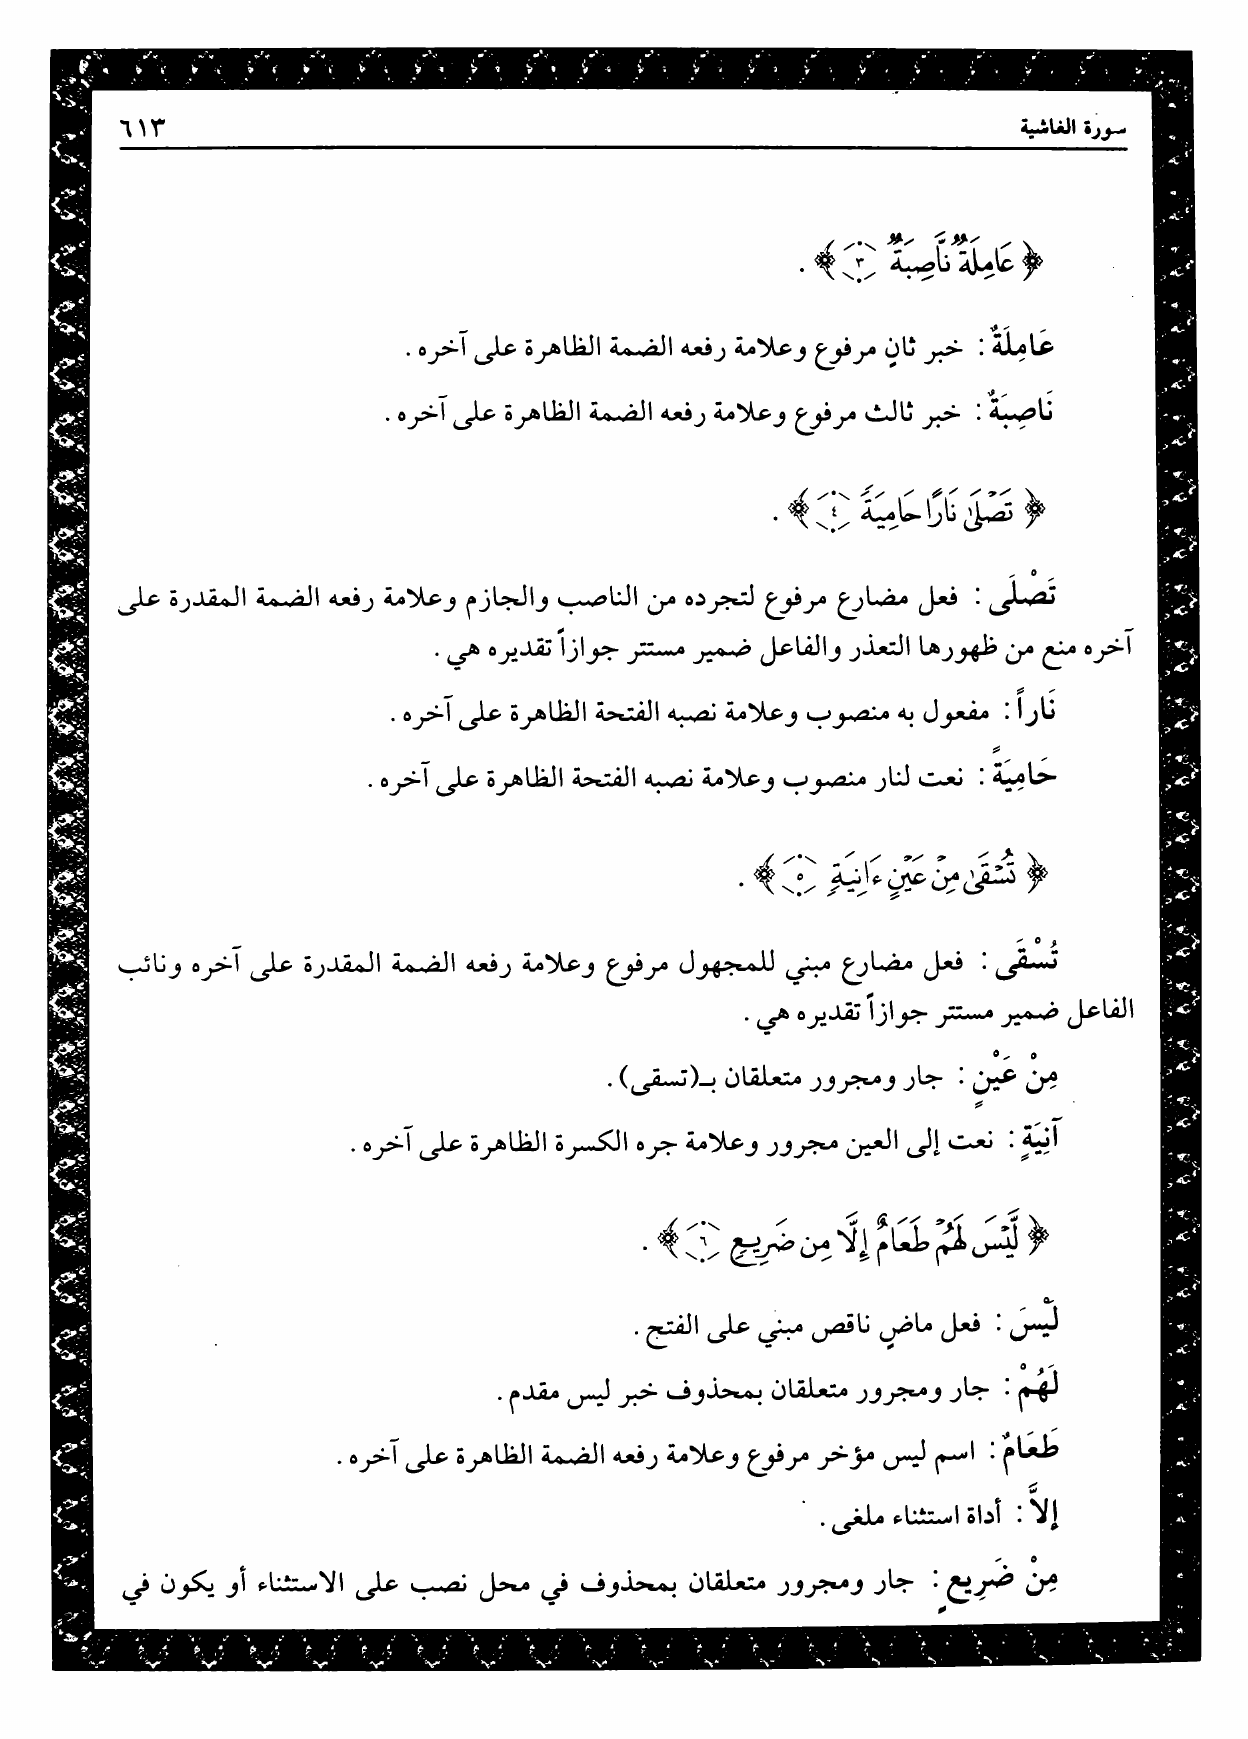 سورة الغاشية ٦١٣
﴿ عَامِلَةٌ نَّاصِبَةٌ ٣ ﴾ .
عَامِلَةٌ : خبر ثانٍ مرفوع وعلامة رفعه الضمة الظاهرة على آخره .
نَاصِبَةٌ : خبر ثالث مرفوع وعلامة رفعه الضمة الظاهرة على آخره .
﴿ تَصْلَىٰ نَارًا حَامِيَةً ٤ ﴾ .
تَصْلَى : فعل مضارع مرفوع لتجرده من الناصب والجازم وعلامة رفعه الضمة المقدرة على
آخره منع من ظهورها التعذر والفاعل ضمير مستتر جوازاً تقديره هي .
نَاراً : مفعول به منصوب وعلامة نصبه الفتحة الظاهرة على آخره .
حَامِيَةً : نعت لنار منصوب وعلامة نصبه الفتحة الظاهرة على آخره .
﴿ تُسْقَىٰ مِنْ عَيْنٍ ءَانِيَةٍ ٥ ﴾ .
تُسْقَى : فعل مضارع مبني للمجهول مرفوع وعلامة رفعه الضمة المقدرة على آخره ونائب
الفاعل ضمير مستتر جوازاً تقديره هي .
مِنْ عَيْنٍ : جار ومجرور متعلقان بـ(تسقى) .
آنِيَةٍ : نعت إلى العين مجرور وعلامة جره الكسرة الظاهرة على آخره .
﴿ لَّيْسَ لَهُمْ طَعَامٌ إِلَّا مِن ضَرِيعٍ ٦ ﴾ .
لَيْسَ : فعل ماضٍ ناقص مبني على الفتح .
لَهُمْ : جار ومجرور متعلقان بمحذوف خبر ليس مقدم .
طَعَامٌ : اسم ليس مؤخر مرفوع وعلامة رفعه الضمة الظاهرة على آخره .
إلاَّ : أداة استثناء ملغى .
مِنْ ضَرِيعٍ : جار ومجرور متعلقان بمحذوف في محل نصب على الاستثناء أو يكون في